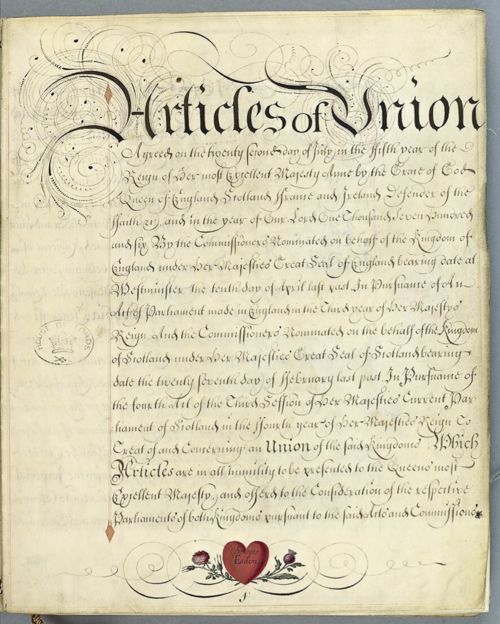 Articles of Union
Agreed on the twenty second day of July in the ffifth year of the
Reign of Her most Excellent Majesty Anne by the Grace of God
Queen of England Scotland ffrance and Ireland Defender of the
ffaith &c, and in the year of Our Lord One Thousand Seven Hundred
and six By the Commissioners Nominated on behalf of the Kingdom of
England under Her Majesties Great Seal of England bearing date at
Westminster the tenth day of April last past In Pursuance of An
Act of Parliament made in England in the Third year of Her Majestys
Reign And the Commissioners Nominated on the behalf of the Kingdom
of Scotland under Her Majesties Great Seal of Scotland bearing
date the twenty seventh day of ffebruary last past In Pursuance of
the fourth Act of the Third Session of Her Majesties Current Par
liament of Scotland in the ffourth year of Her Majesties Reign To
Treat of and Concerning an Union of the said Kingdoms Which
Articles are in all humility to be presented to the Queens most
Excellent Majesty, and offered to the Consideration of the respective
Parliaments of both Kingdoms pursuant to the said Acts and Commissions